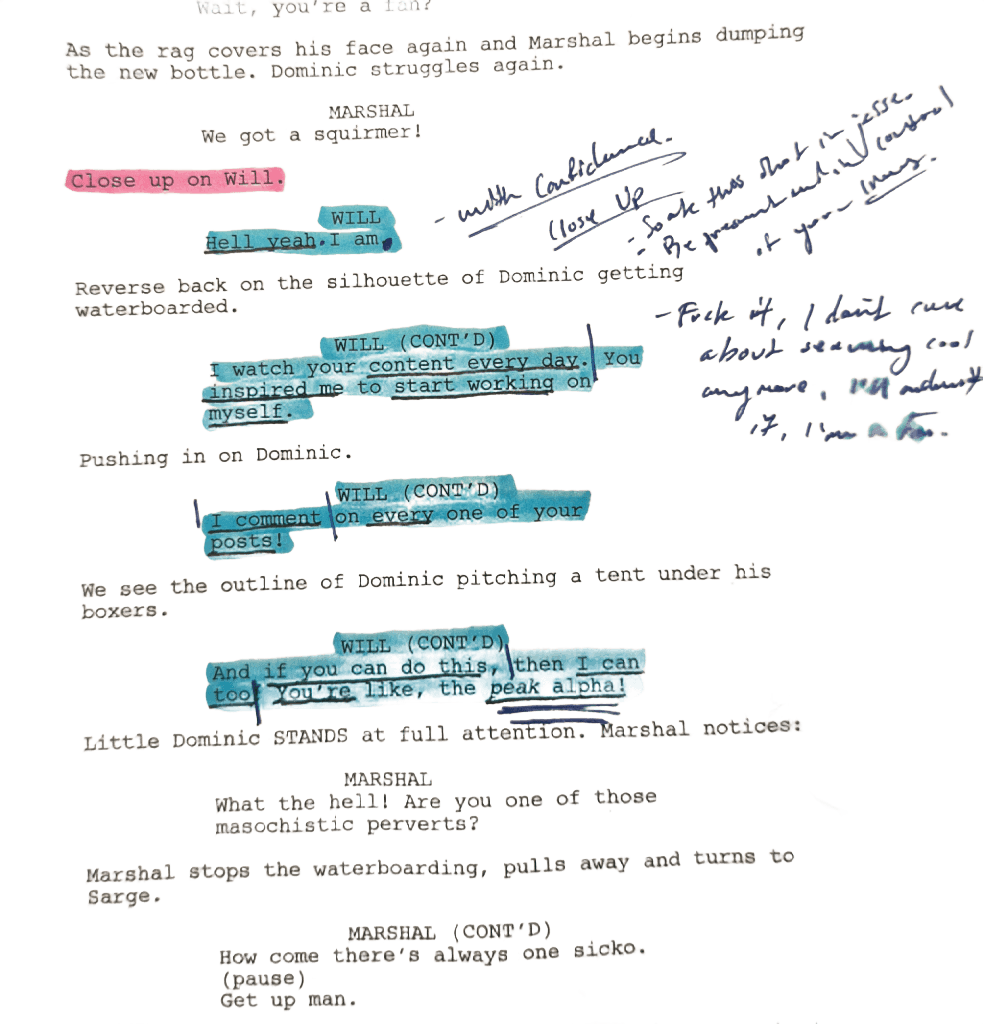 Wait, you're a fan?
As the rag covers his face again and Marshal begins dumping
the new bottle. Dominic struggles again.
MARSHAL
We got a squirmer!
Close up on Will.
- with Confidence.
Close Up
- Soak this shot in jesse.
- Be present and in control
of your
WILL
Hell yeah. I am.
Reverse back on the silhouette of Dominic getting
waterboarded.
- Fuck it, I don't care
about seeming cool
anymore, admit
it, I'm a fan.
WILL (CONT'D)
I watch your content every day. You
inspired me to start working on
myself.
Pushing in on Dominic.
WILL (CONT'D)
I comment on every one of your
posts!
We see the outline of Dominic pitching a tent under his
boxers.
WILL (CONT'D)
And if you can do this, then I can
too! You're like, the peak alpha!
Little Dominic STANDS at full attention. Marshal notices:
MARSHAL
What the hell! Are you one of those
masochistic perverts?
Marshal stops the waterboarding, pulls away and turns to
Sarge.
MARSHAL (CONT'D)
How come there's always one sicko.
(pause)
Get up man.